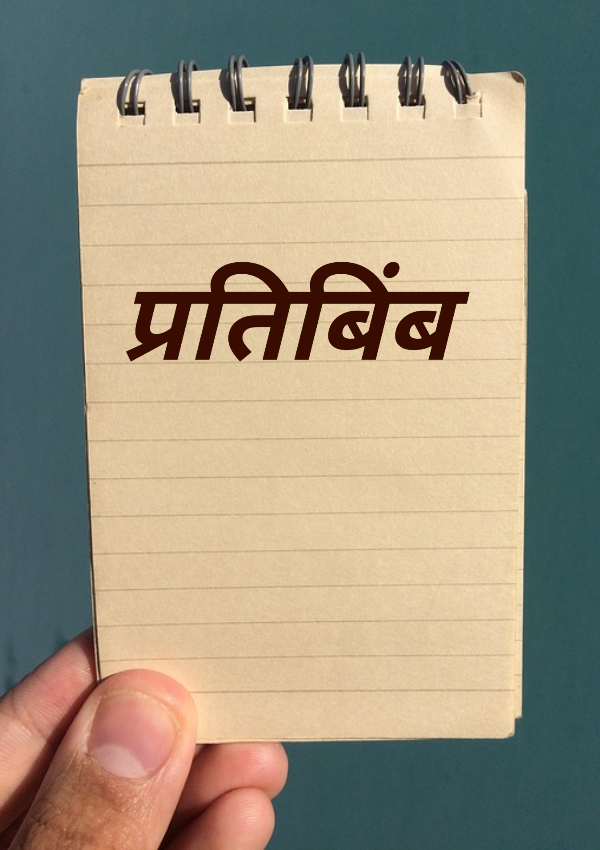 प्रतिबिंब